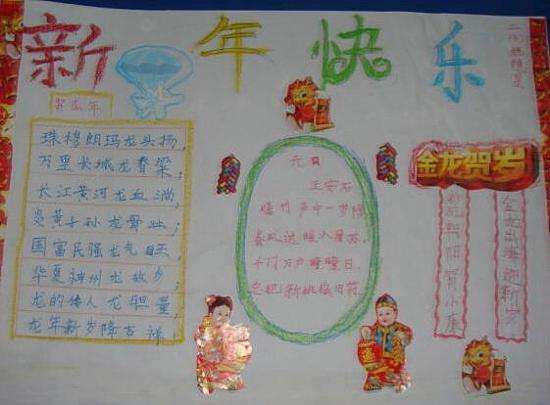 新年快乐
贺龙年
珠穆朗玛龙头扬，
万里长城龙脊梁，
长江黄河龙血淌，
炎黄子孙龙骨壮，
国富民强龙气旺，
华夏神州龙故乡，
龙的传人龙胆量，
龙年新岁降吉祥，
元日
王安石
爆竹声中一岁除
春风送暖入屠苏
千门万户曈曈日
总把新桃换旧符
金龙贺岁
金龙出海迎新岁